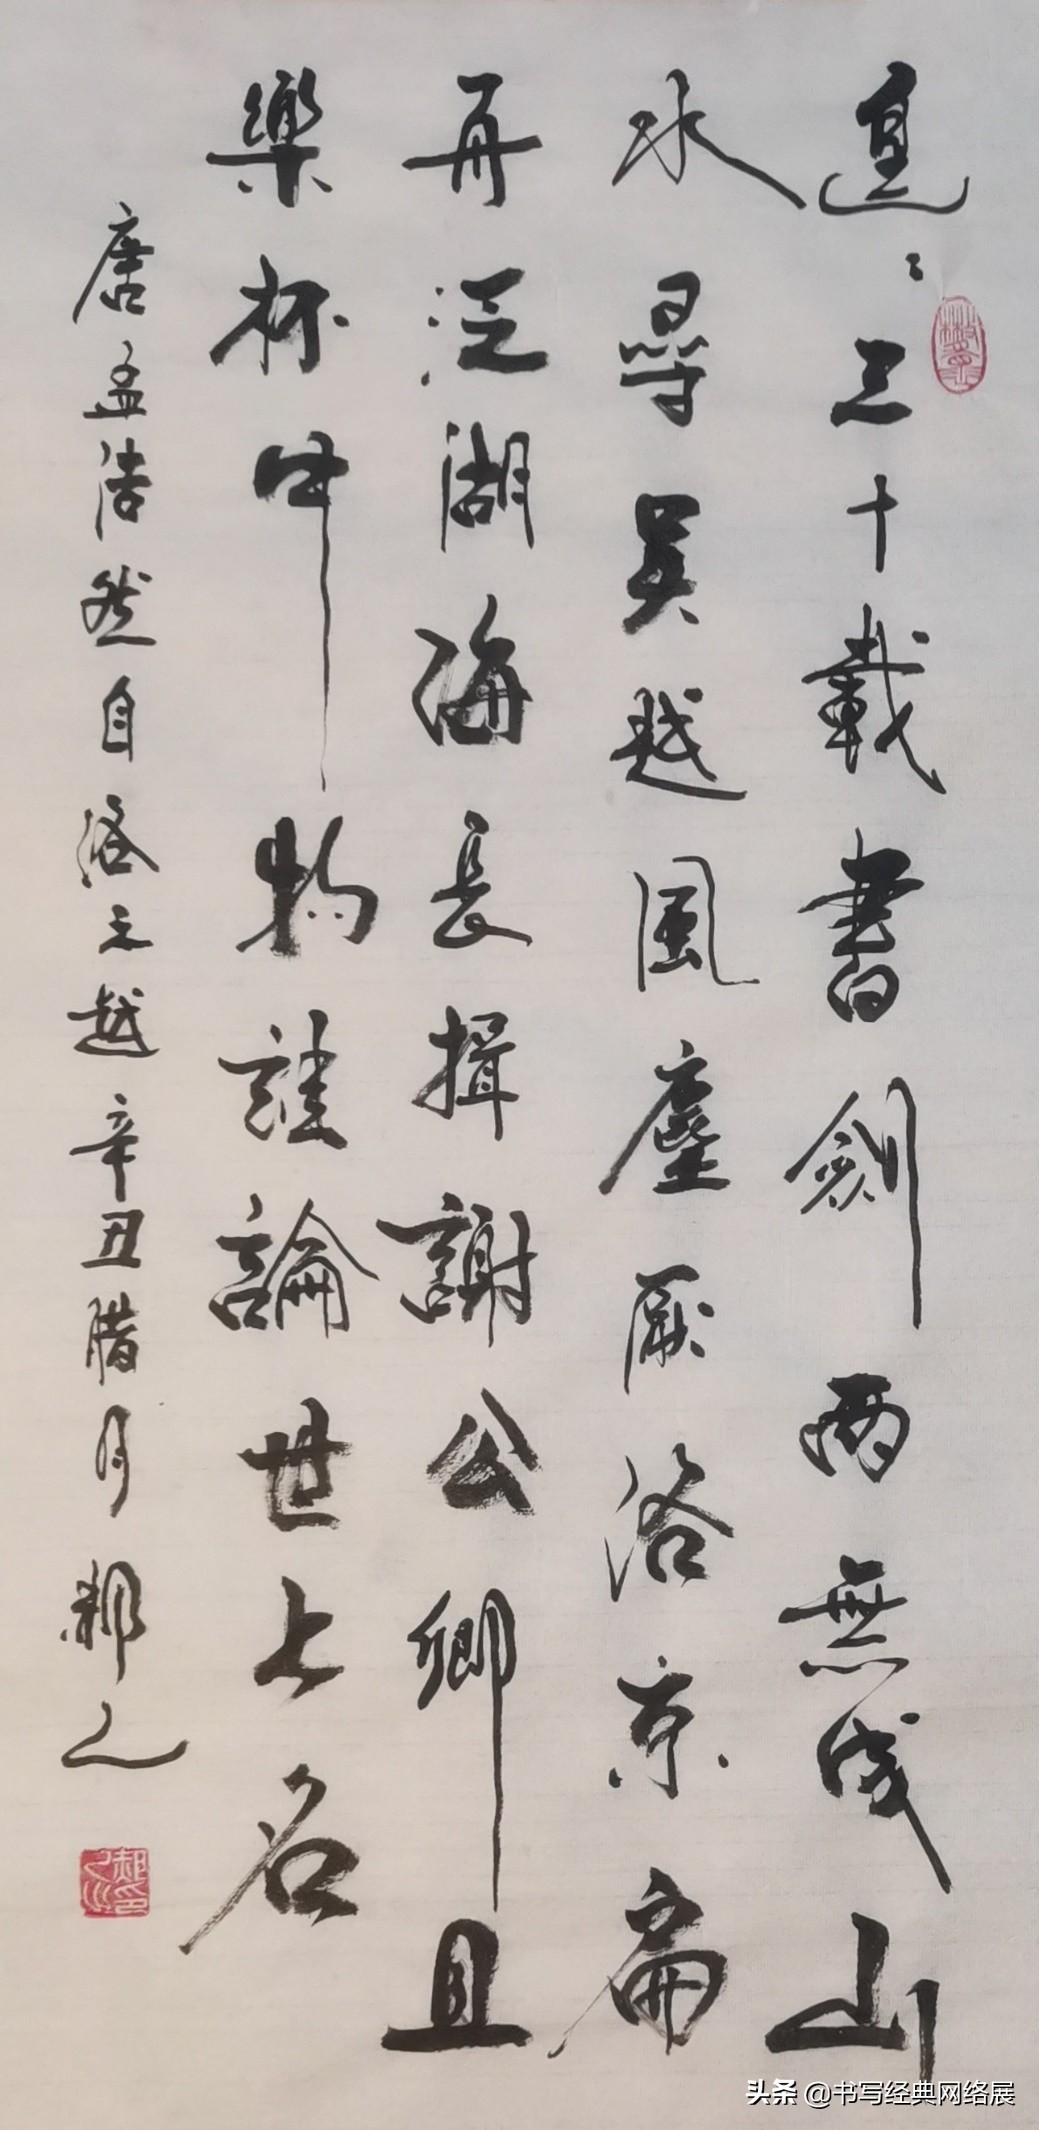 遑〻三十載書劍兩無成山
水尋吳越風塵厭洛京扁
舟泛湖海長揖謝公卿且
樂杯中物誰論世上名
唐孟浩然自洛之越辛丑腊月郝
头条 @书写经典网络展